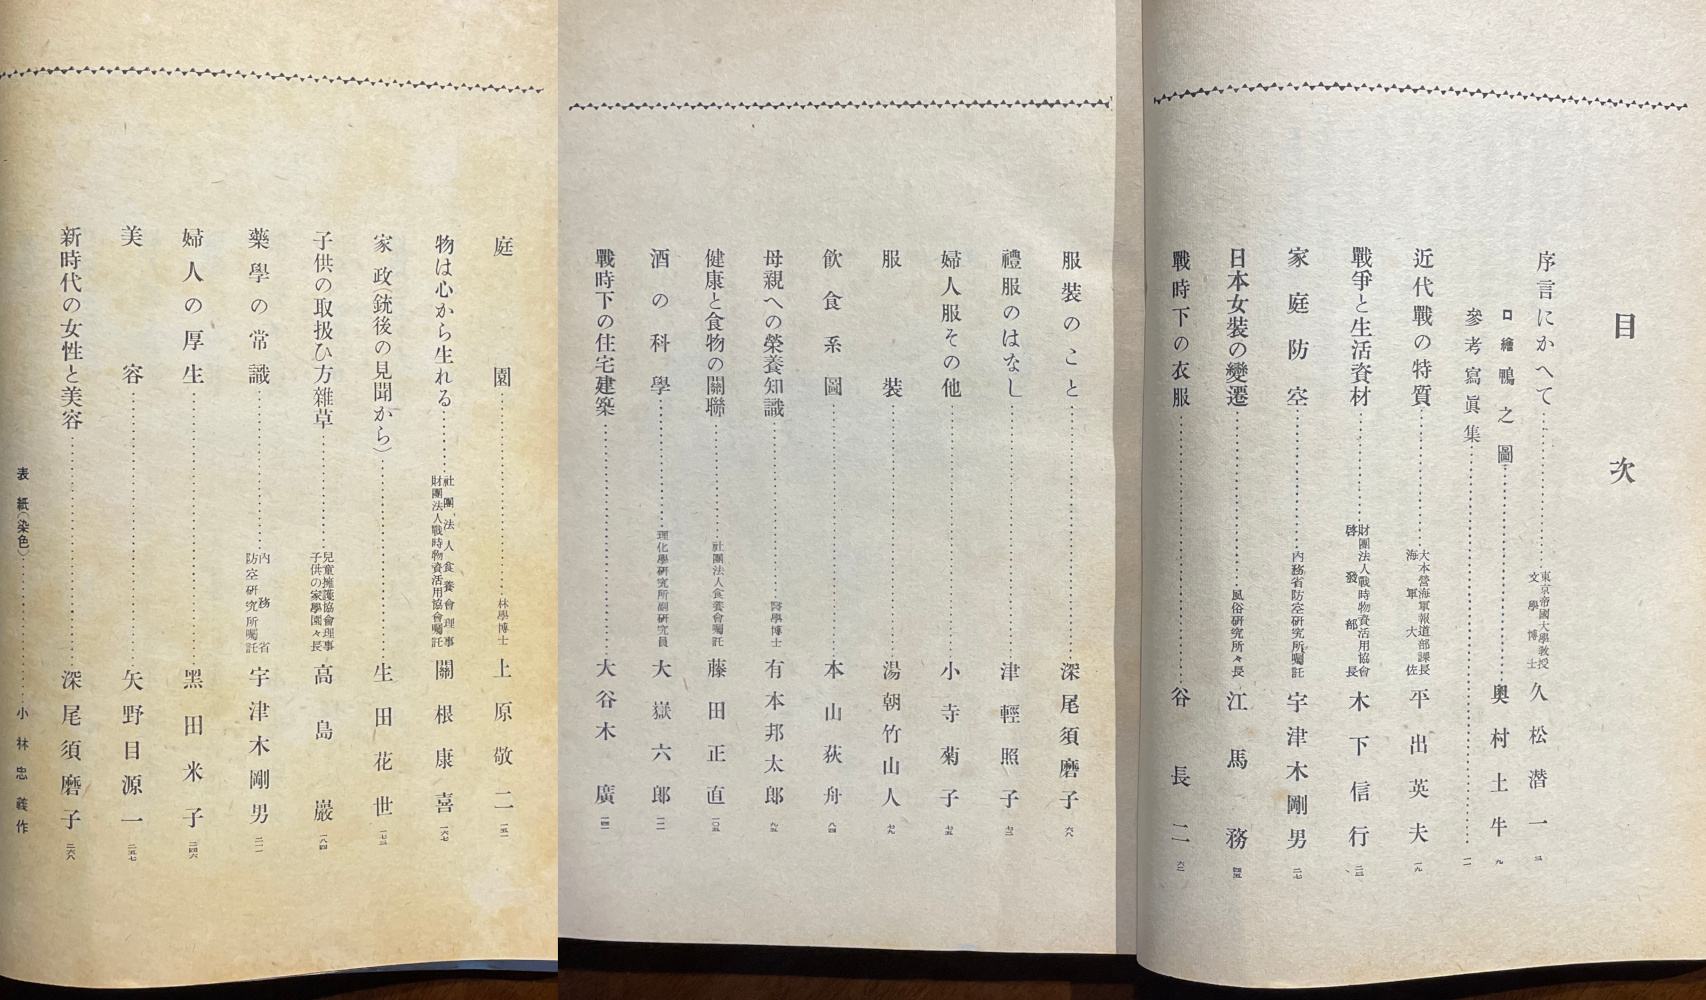 目次
序言にかへて……東京帝國大學教授 文學博士 久松潜一 三
口繪 鴨之圖……奥村土牛 九
參考寫眞集……一一
近代戰の特質……大本營海軍報道部課長 海軍大佐 平出英夫 一九
戰爭と生活資材……財團法人戰時物資活用協會 啓發部長 木下信行 二三
家庭防空……内務省防空研究所囑託 宇津木剛男 二七
日本女裝の變遷……風俗研究所々長 江馬務 四五
戰時下の衣服……谷長二 六二
服裝のこと……深尾須磨子 六八
禮服のはなし……津輕照子 七三
婦人服その他……小寺菊子 七五
服裝……湯朝竹山人 七九
飮食系圖……本山荻舟 八四
母親への榮養知識……醫學博士 有本邦太郎 九五
健康と食物の關聯……社團法人食養會囑託 藤田正直 一〇五
酒の科學……理化學研究所副研究員 大嶽六郎
戰時下の住宅建築……大谷木廣
庭園……林學博士 上原敬二 一五一
物は心から生れる……社團法人食養會理事 財團法人戰時物資活用協會囑託 關根康喜 一六七
家政(銃後の見聞から)……生田花世 一七三
子供の取扱ひ方雜草……兒童擁護協會理事 子供の家學園々長 高島巖 一八四
藥學の常識……内務省防空研究所囑託 宇津木剛男
婦人の厚生……黑田米子 二四六
美容……矢野目源一 二五七
新時代の女性と美容……深尾須磨子 二六八
表紙(染色)……小林忠義作